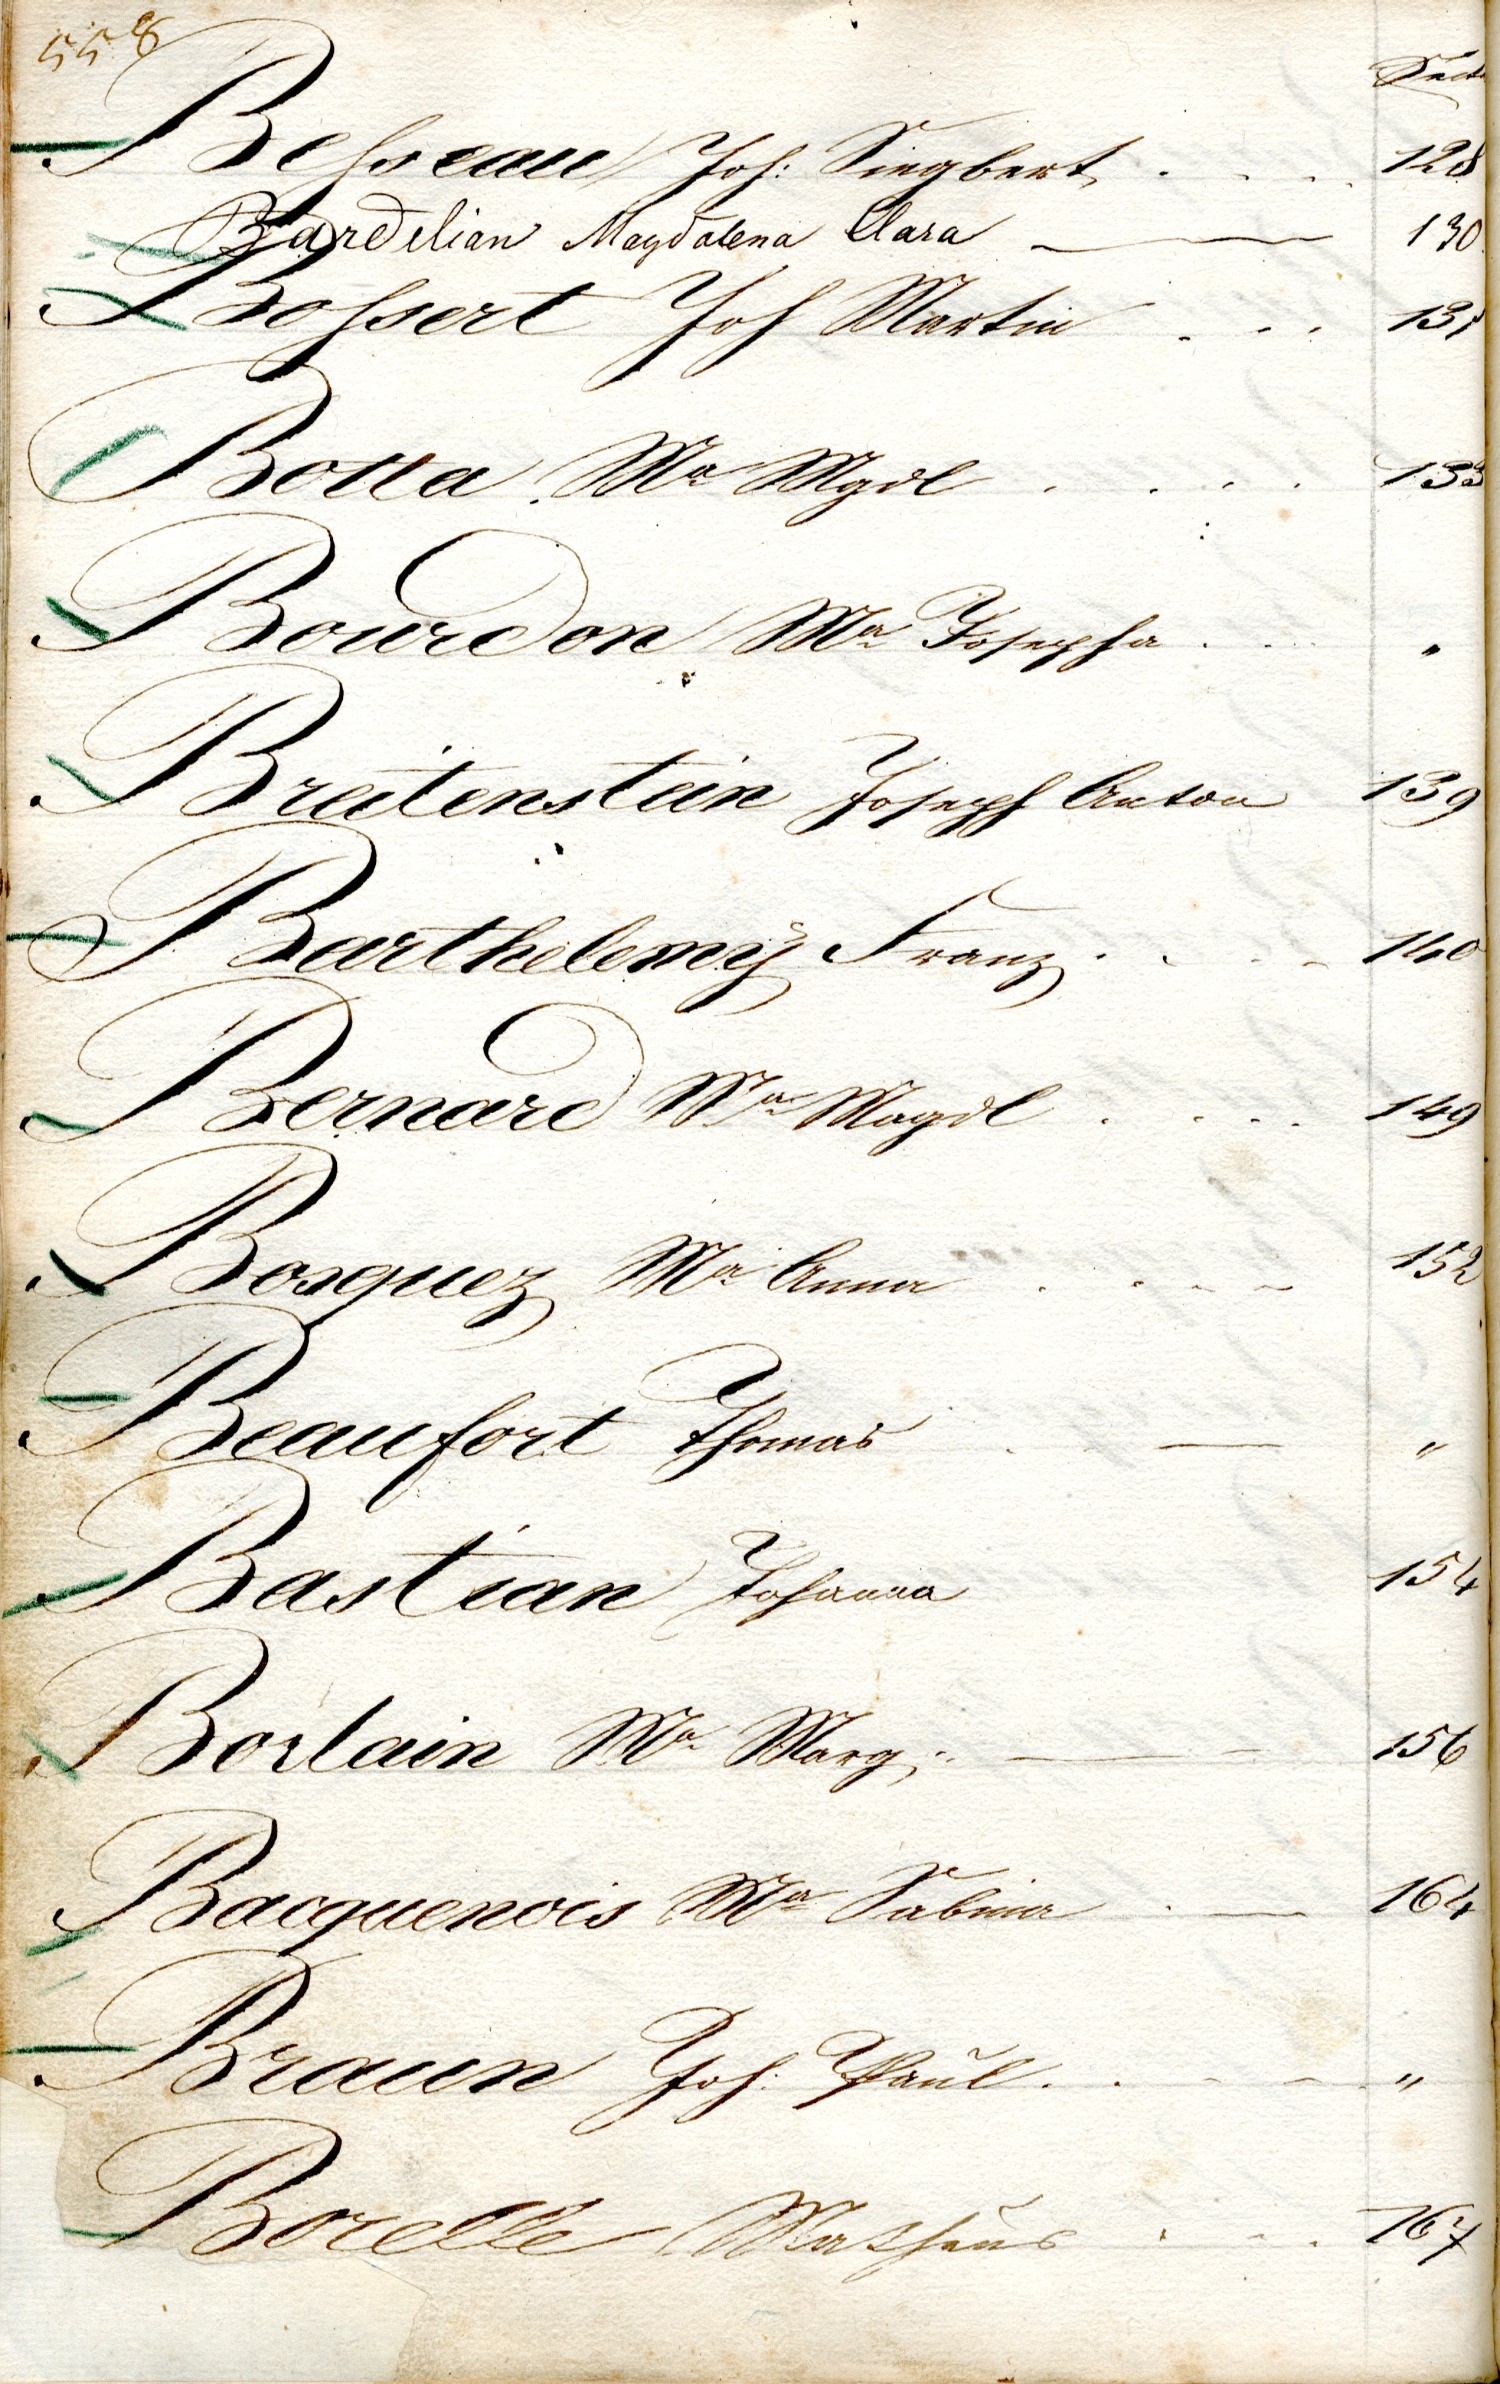 558
Seite
Besseau Joh: Siegbert . . . . 128
Bardelian Magdalena Clara — 130
Bossert Joh Martin . . . 131
Botta Ma Mgdl . . . . 133
Bourdon Ma Josepha . . . "
Breitenstein Joseph Anton 139
Barthelemÿ Franz . . . . 140
Bernard Ma Magdl . . . . 149
Bosquez Ma Anna . . . . 152
Beaufort Thomas . — "
Bastian Johanna 154
Borlain Ma Marg: — 156
Bacquenois Ma Sabina . — 164
Braun Joh: Paul . . . . . "
Borelle Mathäus . . . 167